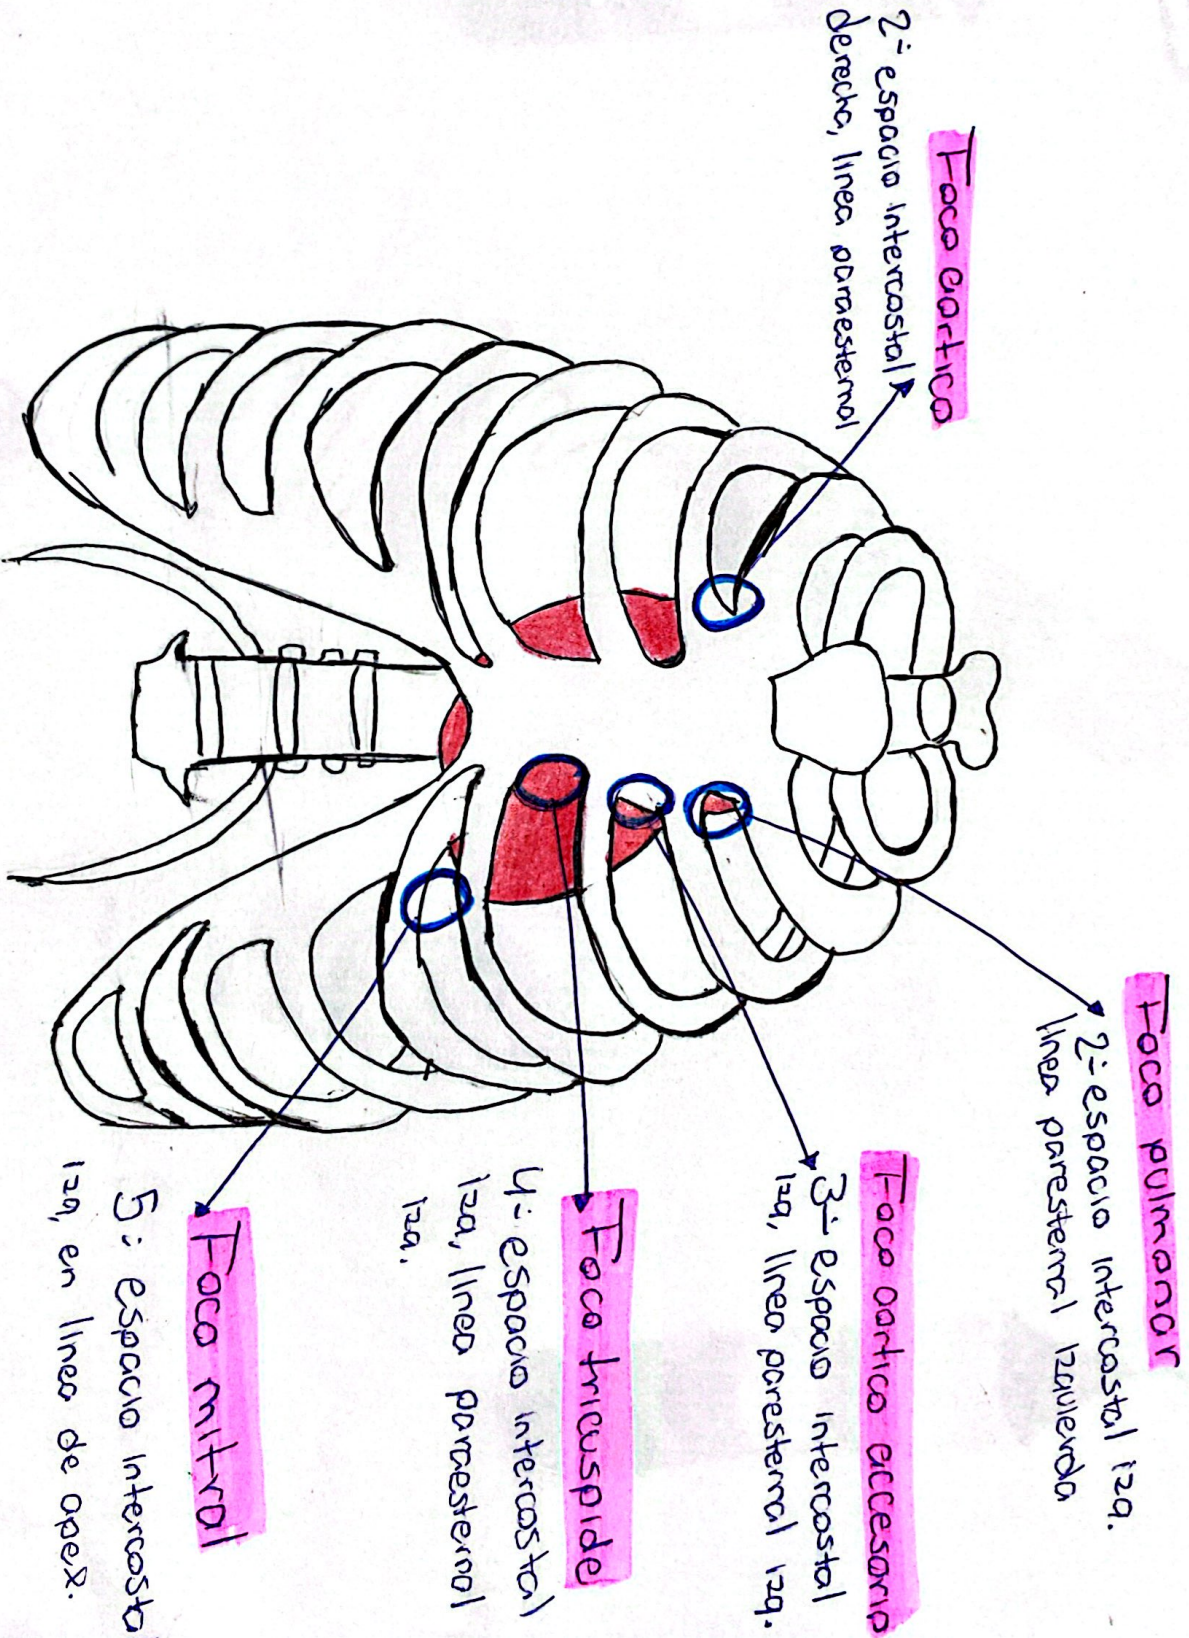 Foco aortico
2º espacio intercostal
derecha, linea paraesternal
Foco pulmonar
2º espacio intercostal izq.
linea paresternal izquierda
Foco aortico accesorio
3º espacio intercostal
izq, linea paresternal izq.
Foco tricuspide
4º espacio intercostal
izq, linea paraesternal
izq.
Foco mitral
5º espacio intercosta
izq, en linea de apex.